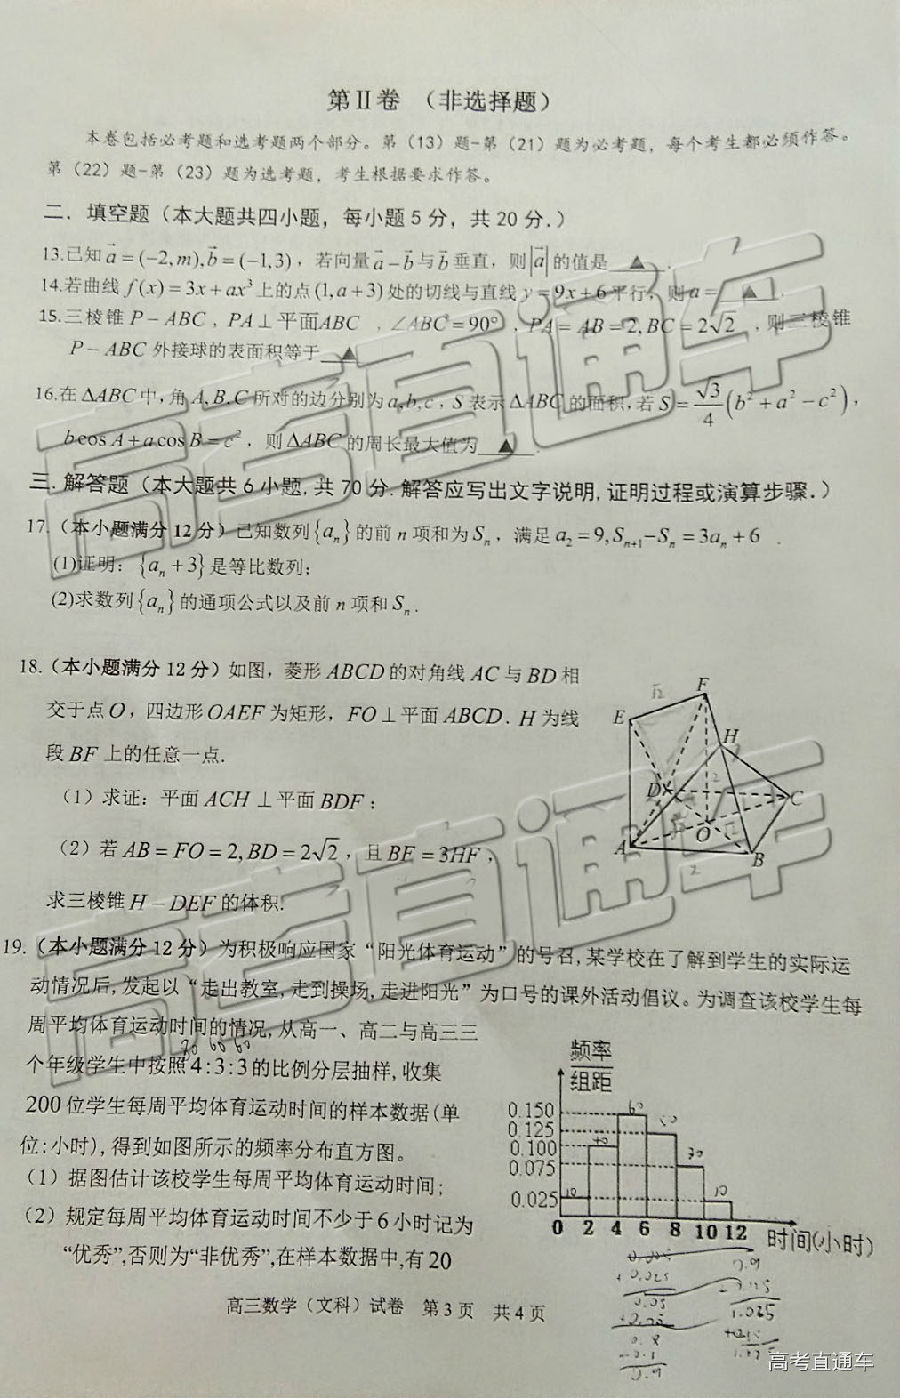 第Ⅱ卷 （非选择题）
本卷包括必考题和选考题两个部分。第（13）题-第（21）题为必考题，每个考生都必须作答。
第（22）题-第（23）题为选考题，考生根据要求作答。
二．填空题（本大题共四小题，每小题5分，共20分．）
13.已知 a⃗=(−2,m),b⃗=(−1,3)，若向量 a⃗−b⃗ 与 b⃗ 垂直，则|a⃗|的值是 ▲ .
14.若曲线 f(x)=3x+ax³上的点(1,a+3)处的切线与直线y=9x+6平行，则a= ▲ .
15.三棱锥P−ABC，PA⊥平面ABC ，∠ABC=90°，PA=AB=2,BC=2√2 ，则三棱锥
P−ABC 外接球的表面积等于 ▲
16.在ΔABC中,角A,B,C所对的边分别为a,b,c，S表示ΔABC的面积,若S=√3/4(b²+a²−c²)，
bcosA+acosB=c²，则ΔABC的周长最大值为 ▲ .
三.解答题（本大题共6小题,共70分.解答应写出文字说明,证明过程或演算步骤.）
17.（本小题满分12分）已知数列{aₙ}的前n项和为Sₙ，满足a₂=9,Sₙ₊₁−Sₙ=3aₙ+6 .
(1)证明：{aₙ+3}是等比数列;
(2)求数列{aₙ}的通项公式以及前n项和Sₙ.
18.（本小题满分12分）如图，菱形ABCD的对角线AC与BD相
交于点O，四边形OAEF为矩形，FO⊥平面ABCD．H为线
段BF上的任意一点.
（1）求证：平面ACH⊥平面BDF；
（2）若AB=FO=2,BD=2√2，且BF=3HF，
求三棱锥H−DEF的体积.
F
E
H
D
C
O
A
B
2
19.（本小题满分12分）为积极响应国家“阳光体育运动”的号召,某学校在了解到学生的实际运
动情况后,发起以“走出教室,走到操场,走进阳光”为口号的课外活动倡议。为调查该校学生每
周平均体育运动时间的情况,从高一、高二与高三三
个年级学生中按照4:3:3的比例分层抽样,收集
200位学生每周平均体育运动时间的样本数据(单
位:小时),得到如图所示的频率分布直方图。
（1）据图估计该校学生每周平均体育运动时间;
（2）规定每周平均体育运动时间不少于6小时记为
“优秀”,否则为“非优秀”,在样本数据中,有20
频率
组距
0.150
0.125
0.100
0.075
0.025
0 2 4 6 8 10 12 时间(小时)
高三数学（文科）试卷 第3页 共4页
高考直通车
高考直通车
高考直通车